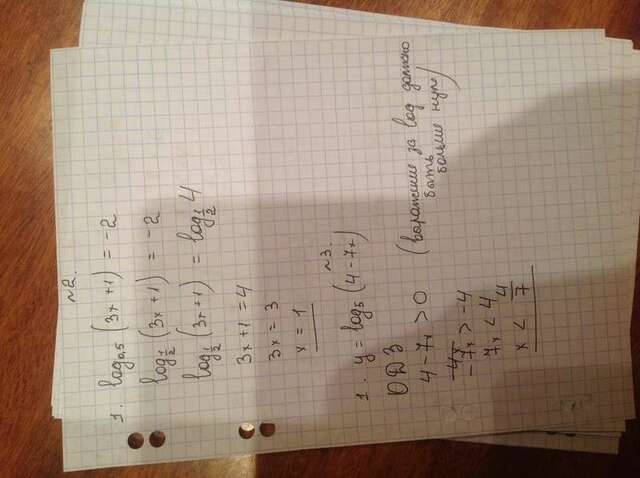 №2.
1. log₀,₅ (3x + 1) = -2
log_{1/2} (3x + 1) = -2
log_{1/2} (3x + 1) = log_{1/2} 4
3x + 1 = 4
3x = 3
x = 1
№3.
1. y = log₅ (4 - 7x)
ОДЗ
4 - 7x > 0 (выражение за log должно
быть
больше нуля)
-7x > -4
7x < 4
x < 4/7